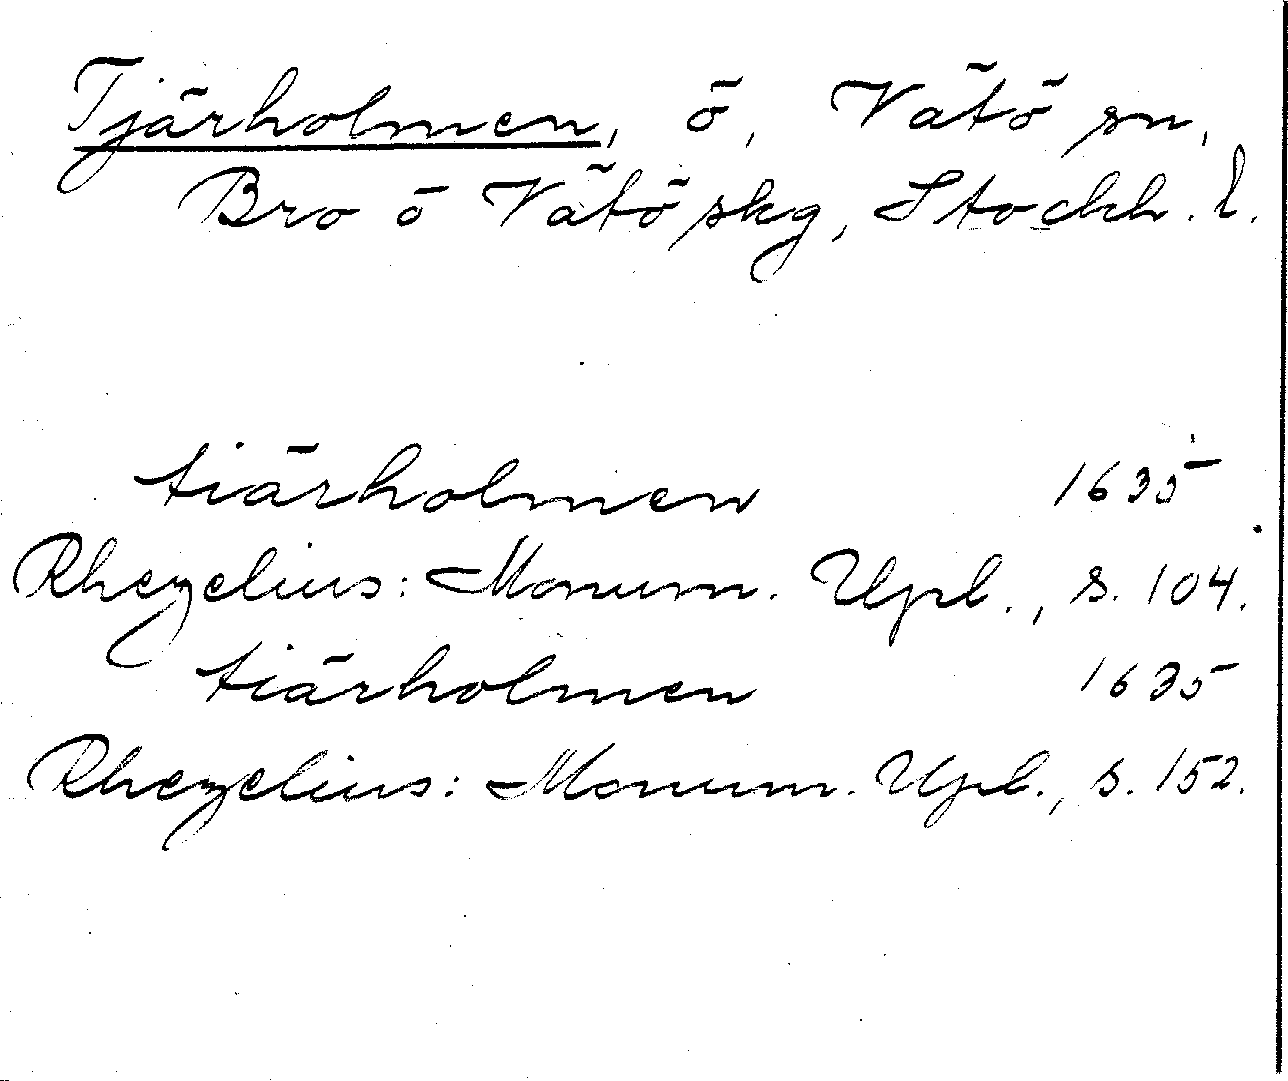 Tjärholmen, ö, Vätö sn,
Bro o Vätö skg, Stockh. l.
tiärholmen 1635
Rhezelius: Monum. Upl., s. 104.
tiärholmen 1635
Rhezelius: Monum. Upl., s. 152.